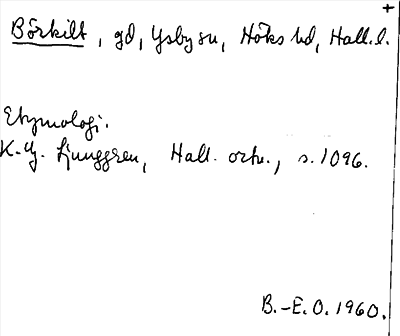 +
Börkilt, gd, Ysby sn, Höks hd, Hall. l.
Etymologi.
K.-G. Ljunggren, Hall. ortn., s. 1096.
B.-E. O. 1960.